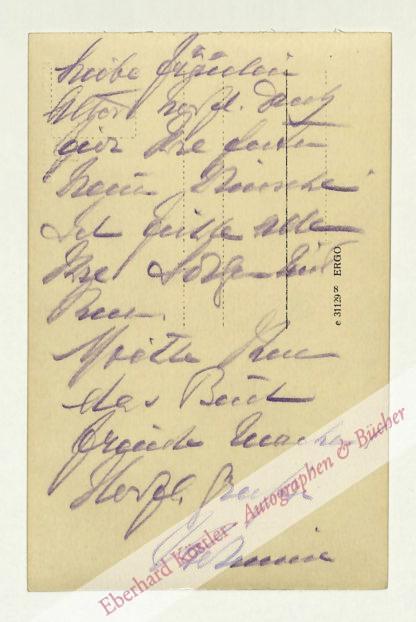 Liebe Fräulein
herzl. Dank
für Ihre guten
Wünsche.
Ich fühle alle
Ihre Sorgen mit
Ihnen.
Möchte Ihnen
das Bild
Freude machen
Herzl. Grüße
e 31129∞ ERGO
Eberhard Köstler Autographen & Bücher